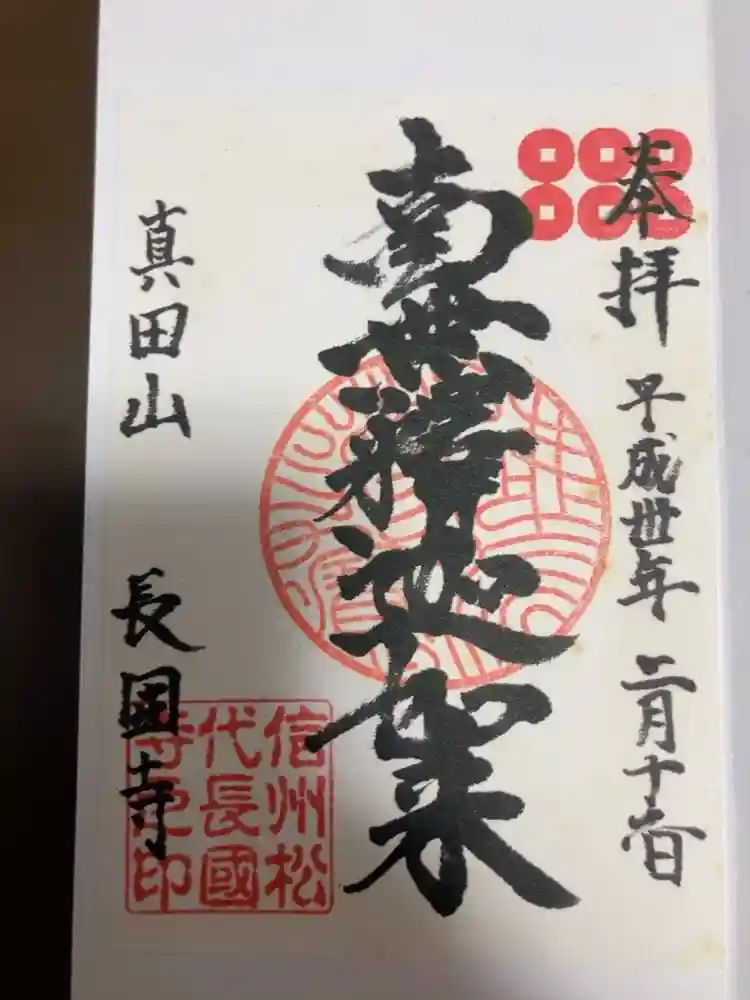 奉拝
平成丗年二月十六日
南無釋迦如来
真田山
長國寺
信州松
代長國
寺之印